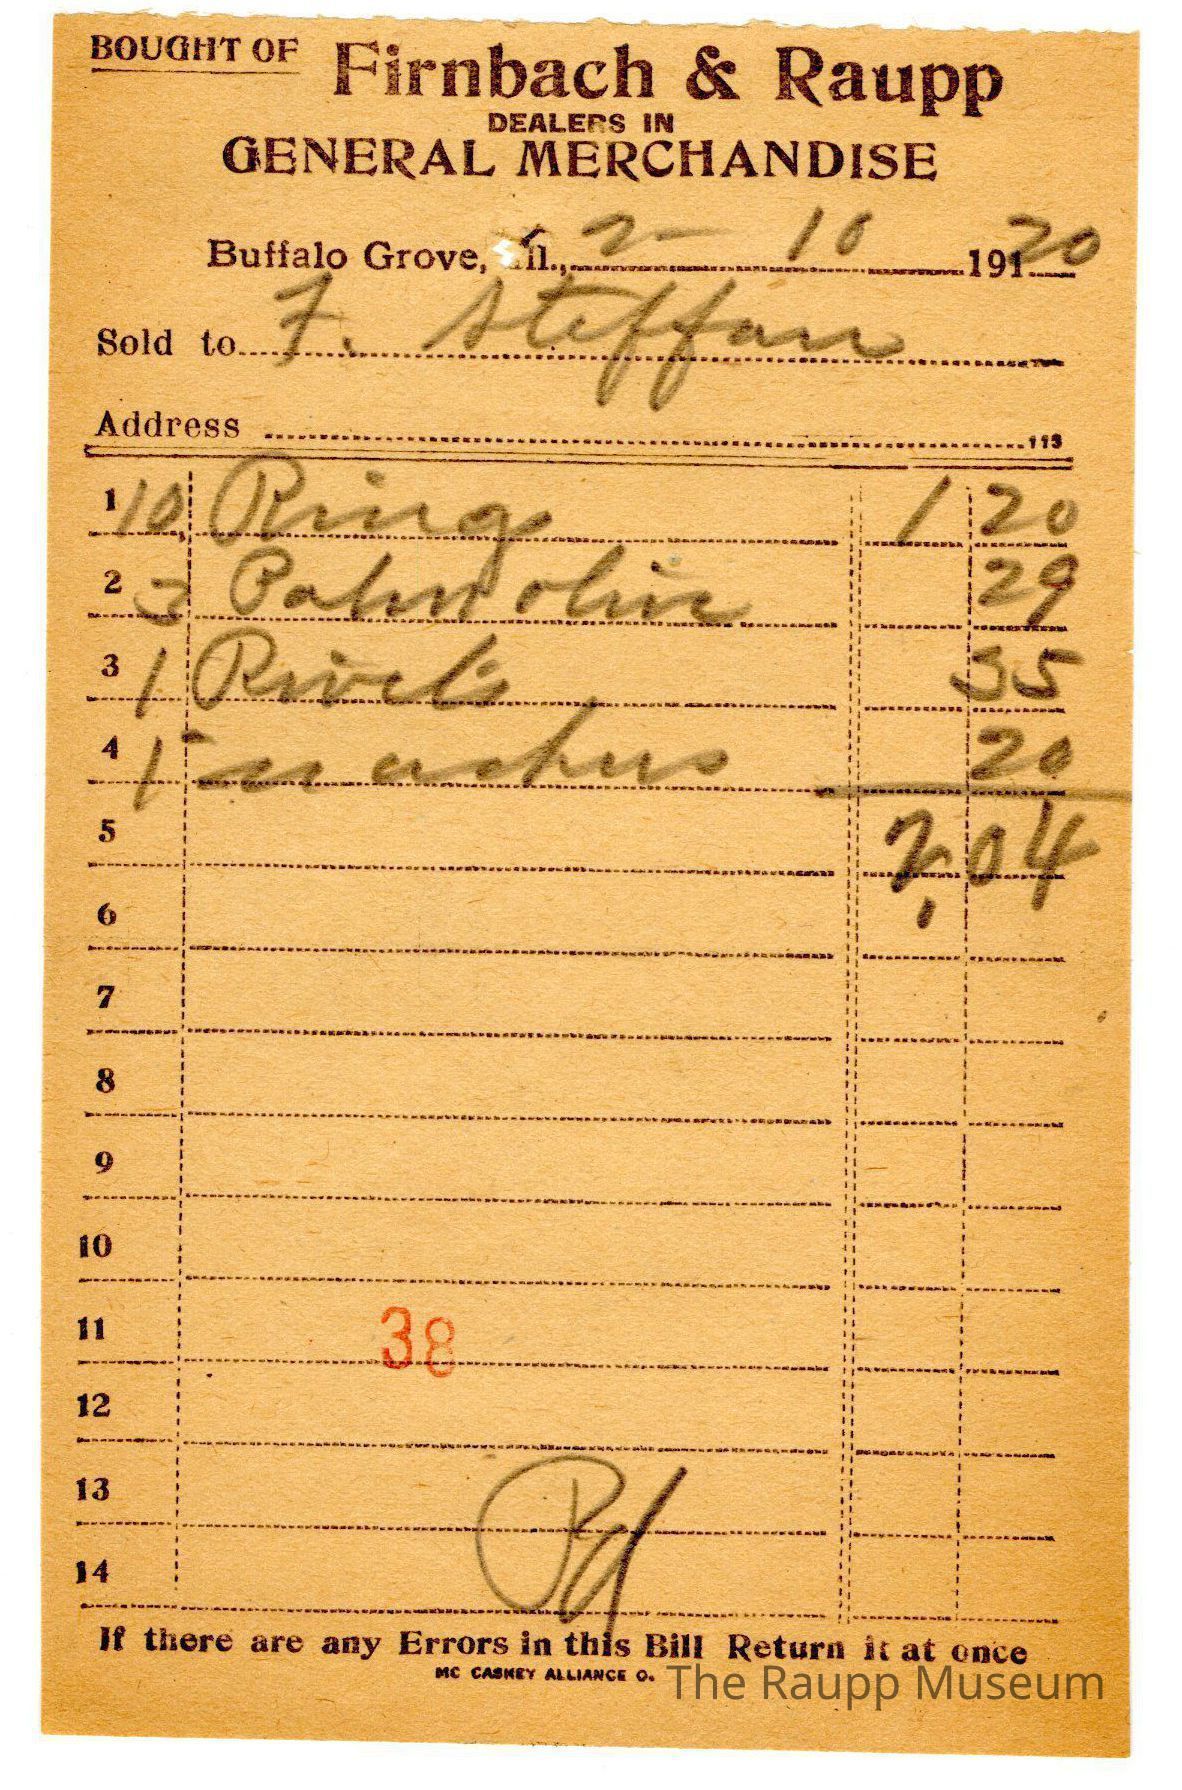 BOUGHT OF Firnbach & Raupp
DEALERS IN
GENERAL MERCHANDISE
Buffalo Grove, Ill., 2-10 19120
Sold to F. Steffan
Address
113
1 10 Ring 1 20
2 3 Palm olive 29
3 1 35
4 1 20
5 2.04
6
7
8
9
10
11 38
12
13
14 Pd
If there are any Errors in this Bill Return it at once
MC CASKEY ALLIANCE O.
The Raupp Museum